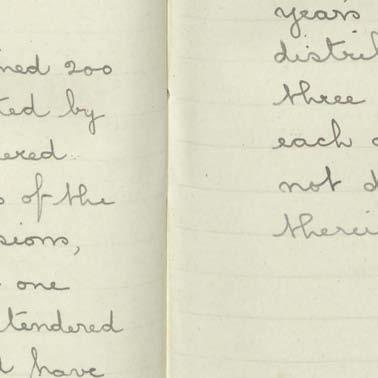 ned 200
ted by
ered
s of the
sions,
one
tendered
d have
years
distrib
three
each
not d
therei